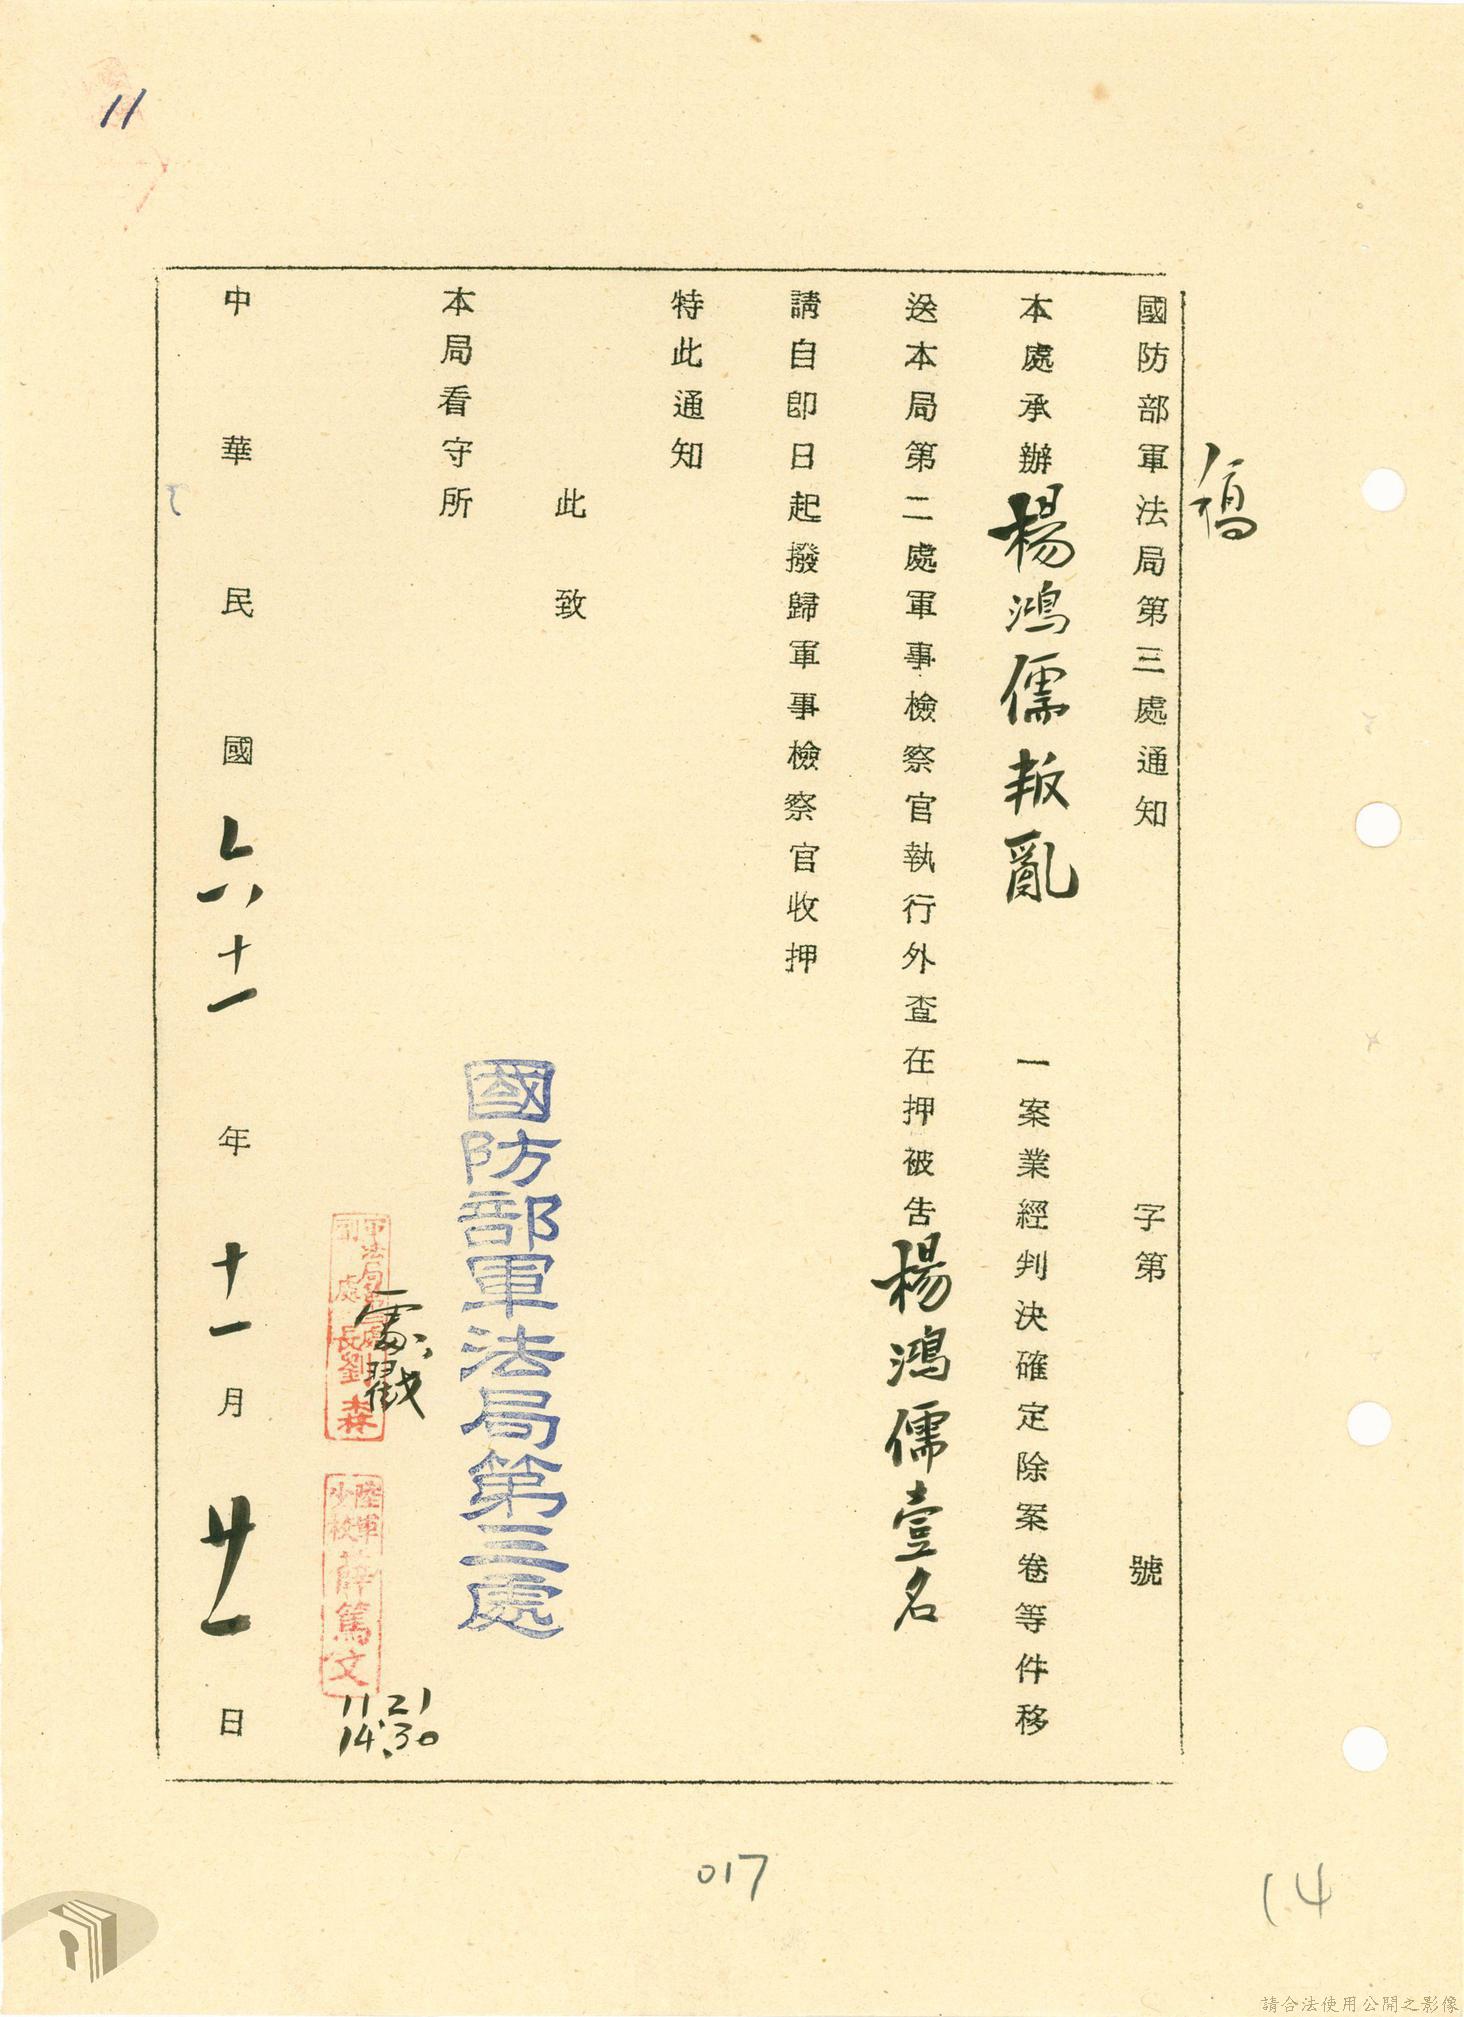 11
稿
國防部軍法局第三處通知 字第 號
本處承辦楊鴻儒叛亂 一案業經判決確定除案卷等件移
送本局第二處軍事檢察官執行外查在押被告楊鴻儒壹名
請自即日起撥歸軍事檢察官收押
特此通知
此致
本局看守所
國防部軍法局第三處
戳
軍法局第三處
副處長劉森
陸軍
少校
薛篤文
11 21
14.30
中華民國六十一年十一月廿一日
017
14
請合法使用公開之影像